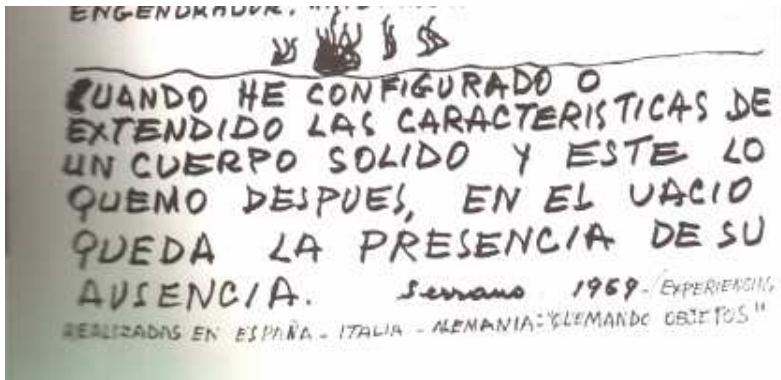 ENGENDRADOR.
CUANDO HE CONFIGURADO O
EXTENDIDO LAS CARACTERISTICAS DE
UN CUERPO SOLIDO Y ESTE LO
QUEMO DESPUES, EN EL VACIO
QUEDA LA PRESENCIA DE SU
AUSENCIA. Serrano 1969-/EXPERIENCIAS
REALIZADAS EN ESPAÑA - ITALIA - ALEMANIA: "QUEMANDO OBJETOS"